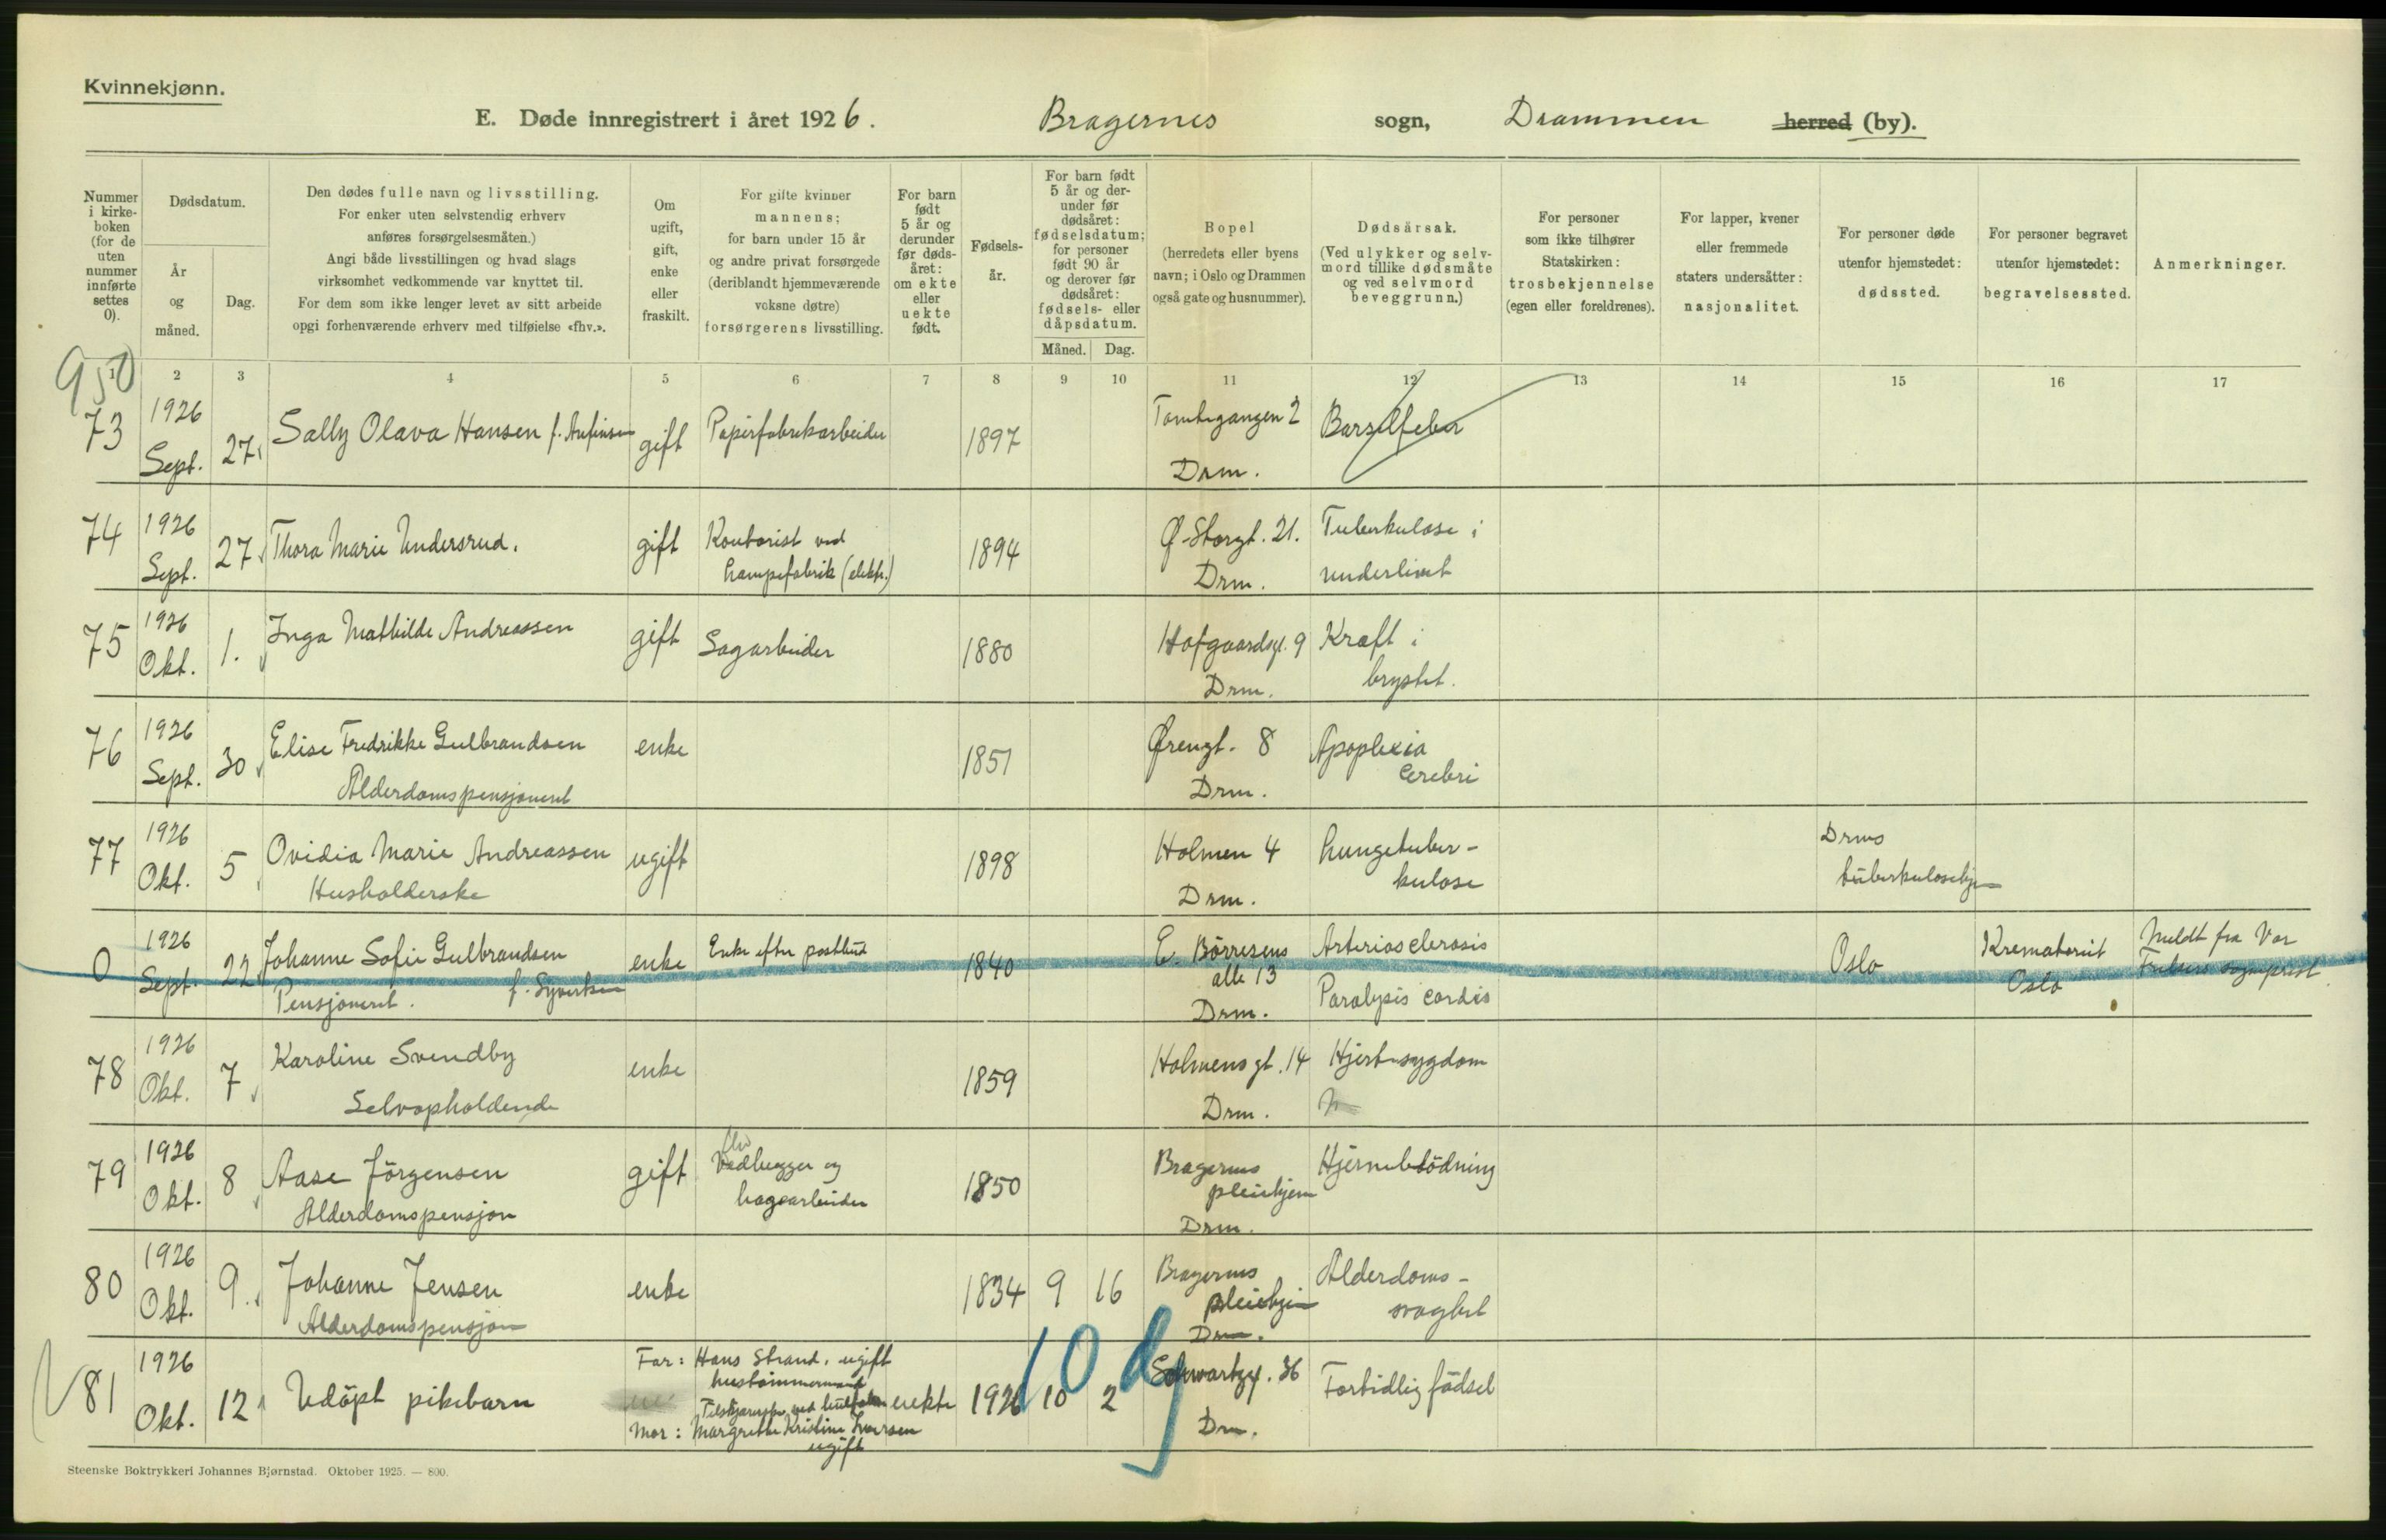 Kvinnekjønn.
E. Døde innregistrert i året 1926. Bragernes sogn, Drammen herred (by).
Nummer i kirkeboken (for de uten nummer innførte settes 0).
Dødsdatum.
År og måned.
Dag.
Den dødes fulle navn og livsstilling.
For enker uten selvstendig erhverv
anføres forsørgelsesmåten.)
Angi både livsstillingen og hvad slags
virksomhet vedkommende var knyttet til.
For dem som ikke lenger levet av sitt arbeide
opgi forhenværende erhverv med tilføielse «fhv.».
Om
ugift,
gift,
enke
eller
fraskilt.
For gifte kvinner
mannens;
for barn under 15 år
og andre privat forsørgede
(deriblandt hjemmeværende
voksne døtre)
forsørgerens livsstilling.
For barn
født
5 år og
derunder
før døds-
året:
om ekte
eller
uekte
født.
Fødsels-
år.
For barn født
5 år og der-
under før
dødsåret:
fødselsdatum;
for personer
født 90 år
og derover før
dødsåret:
fødsels- eller
dåpsdatum.
Måned. Dag.
Bopel
(herredets eller byens
navn; i Oslo og Drammen
også gate og husnummer).
Dødsårsak.
(Ved ulykker og selv-
mord tillike dødsmåte
og ved selvmord
beveggrunn.)
For personer
som ikke tilhører
Statskirken:
trosbekjennelse
(egen eller foreldrenes).
For lapper, kvener
eller fremmede
staters undersåtter:
nasjonalitet.
For personer døde
utenfor hjemstedet:
dødssted.
For personer begravet
utenfor hjemstedet:
begravelsessted.
Anmerkninger.
950
1 2 3 4 5 6 7 8 9 10 11 12 13 14 15 16 17
73 1926 Sept. 27. Sally Olava Hansen f. Anfinsen gift Papirfabrikarbeider 1897 Tomtegangen 2 Drm. Barselfeber
74 1926 Sept. 27. Thora Marie Undersrud. gift Kontorist ved lampefabrik (elektr.) 1894 Ø. Storgt. 21. Drm. Tuberkulose i underlivet
75 1926 Okt. 1. Inga Mathilde Andreassen gift Sagarbeider 1880 Hofgaardsgt. 9 Drm. Kræft i brystet.
76 1926 Sept. 30 Elise Fredrikke Gulbrandsen Alderdomspensjoneret enke 1851 Ørengt. 8 Drm. Apoplexia cerebri
77 1926 Okt. 5 Ovidia Marie Andreassen Husholderske ugift 1898 Holmen 4 Drm. Lungetuber-kulose Drms tuberkulosehjem
0 1926 Sept. 22 Johanne Sofie Gulbrandsen f. Syvertsen Pensjoneret. enke Enke efter postbud 1840 E. Börresens alle 13 Drm. Arteriosclerosis Paralysis cordis Oslo Krematoriet Oslo Meldt fra Vor Frelsers sogneprest
78 1926 Okt. 7 Karoline Svendby Selvopholdende enke 1859 Holmens gt. 14 Drm. Hjertesygdom
79 1926 Okt. 8 Aase Jörgensen Alderdomspensjon gift fhv Vedhugger og hagearbeider 1850 Bragernes pleiehjem Drm. Hjerneblödning
80 1926 Okt. 9. Johanne Jensen Alderdomspensjon enke 1834 9 16 Bragernes pleiehjem Drm. Alderdoms-svaghet
81 1926 Okt. 12 Udöpt pikebarn Far: Hans Strand, ugift hustömmermand Mor: Margrethe Kristine Larsen ugift uekte 1926 10 2 Schwartzgt. 36 Drm. Fortidlig födsel
10 d
Steenske Boktrykkeri Johannes Bjørnstad. Oktober 1925. — 800.